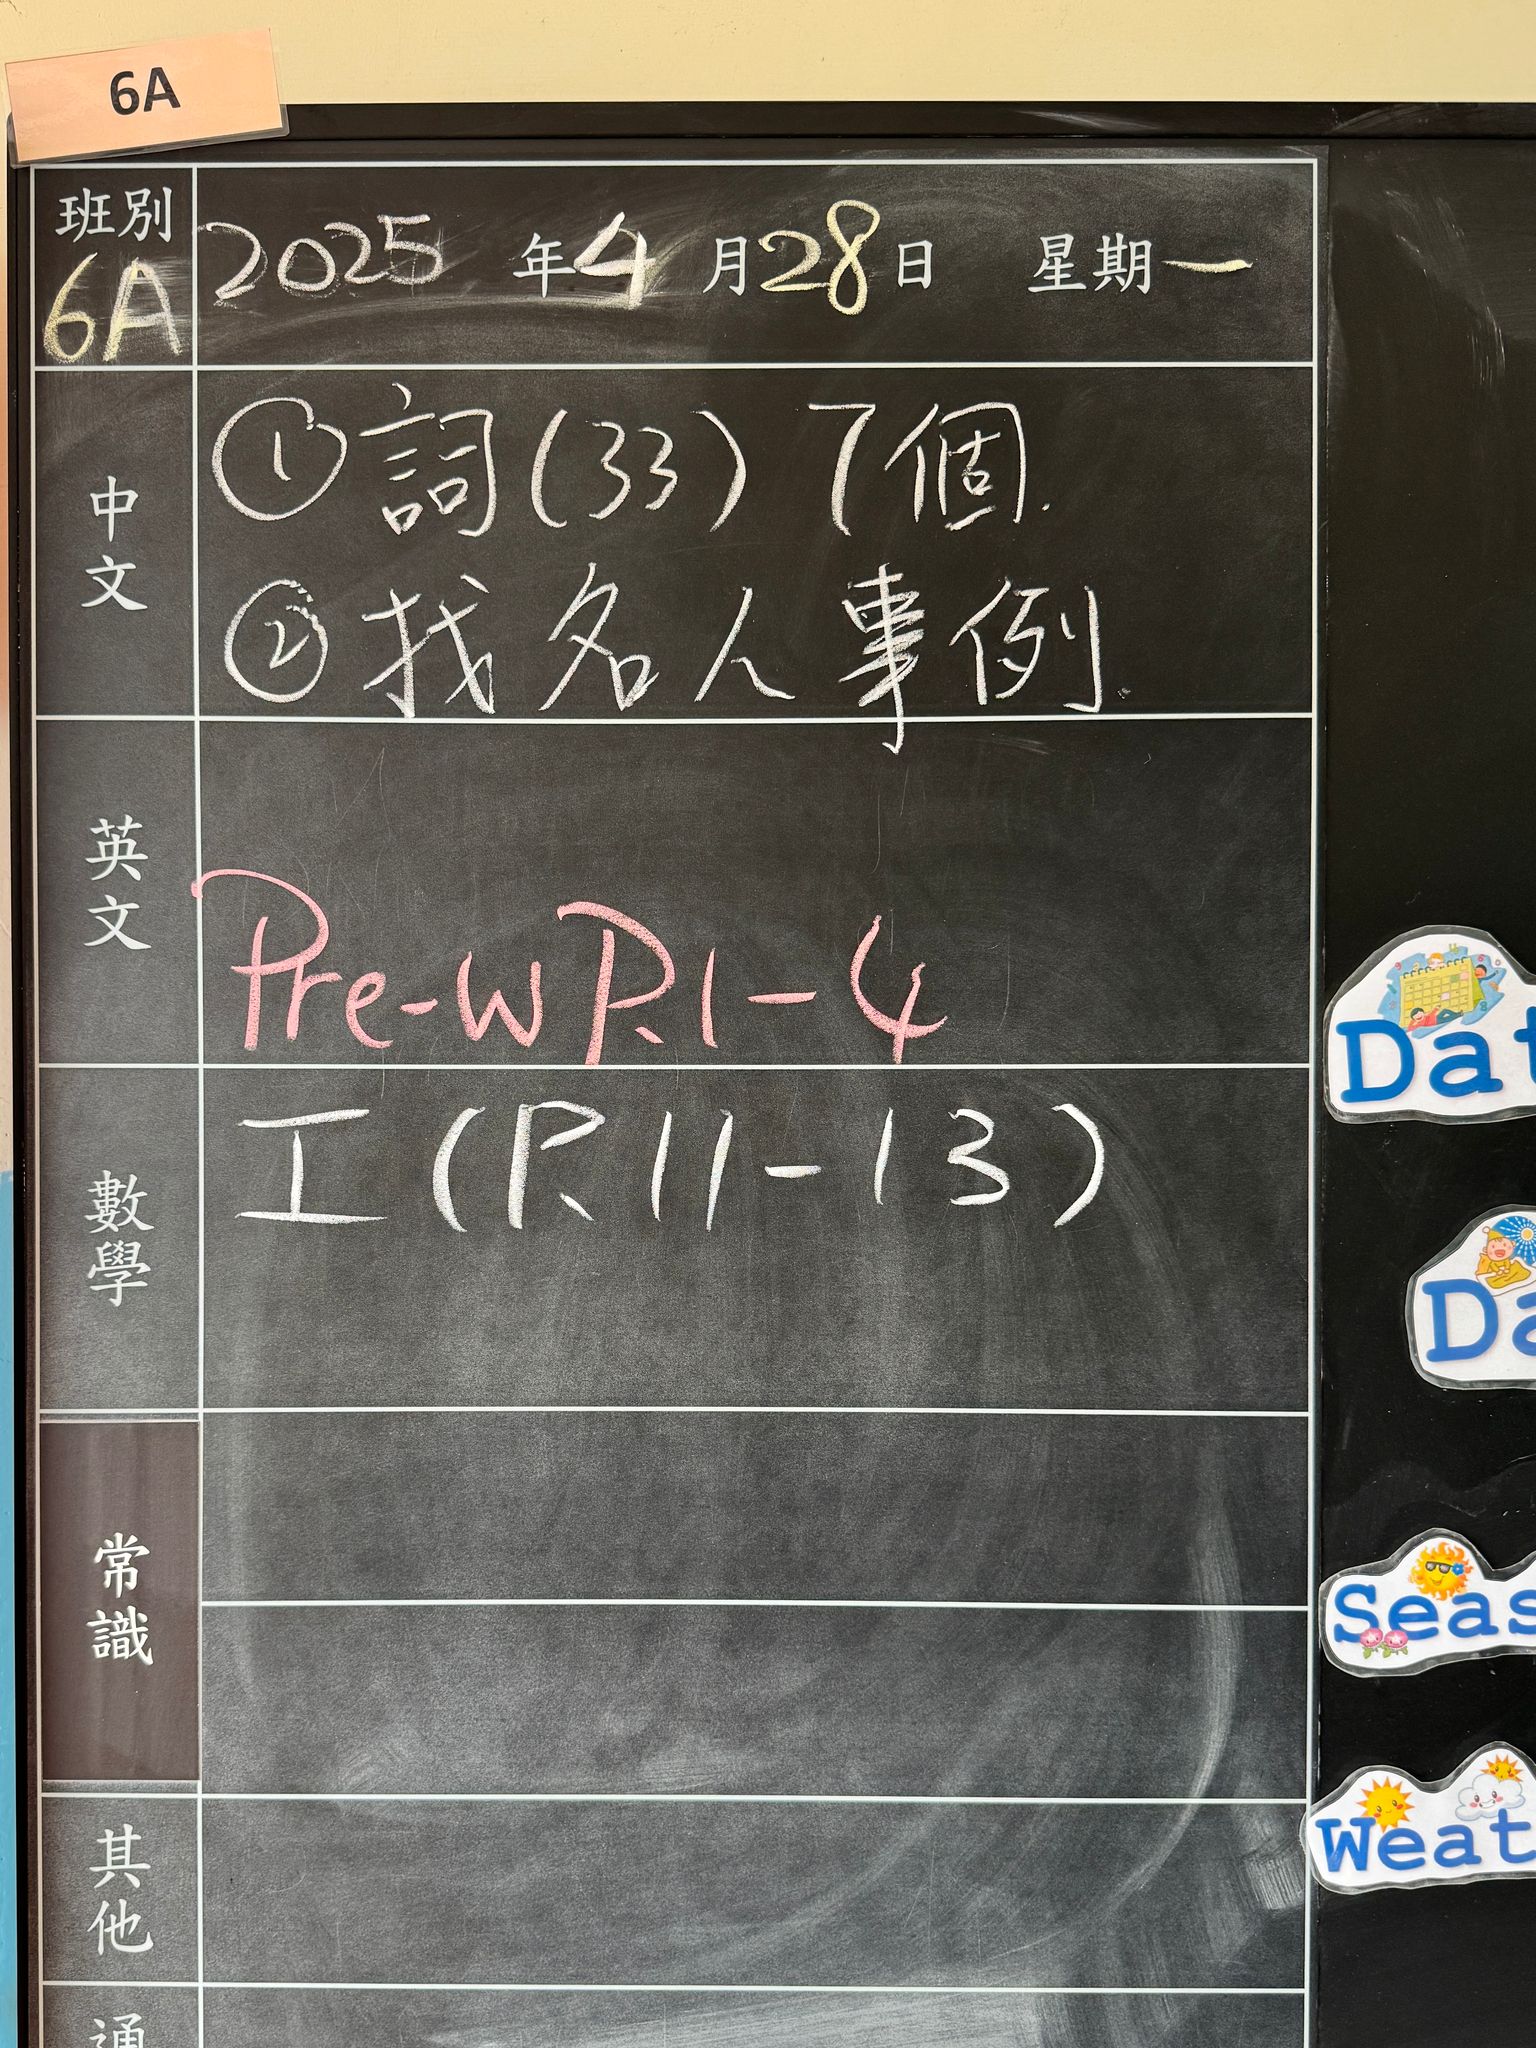 6A
班別
6A
2025年4月28日 星期一
中文
①詞(33)7個.
②找名人事例.
英文
Pre-w P.1-4
數學
工(P.11-13)
常識
其他
通
Dat
Da
Seas
Weat